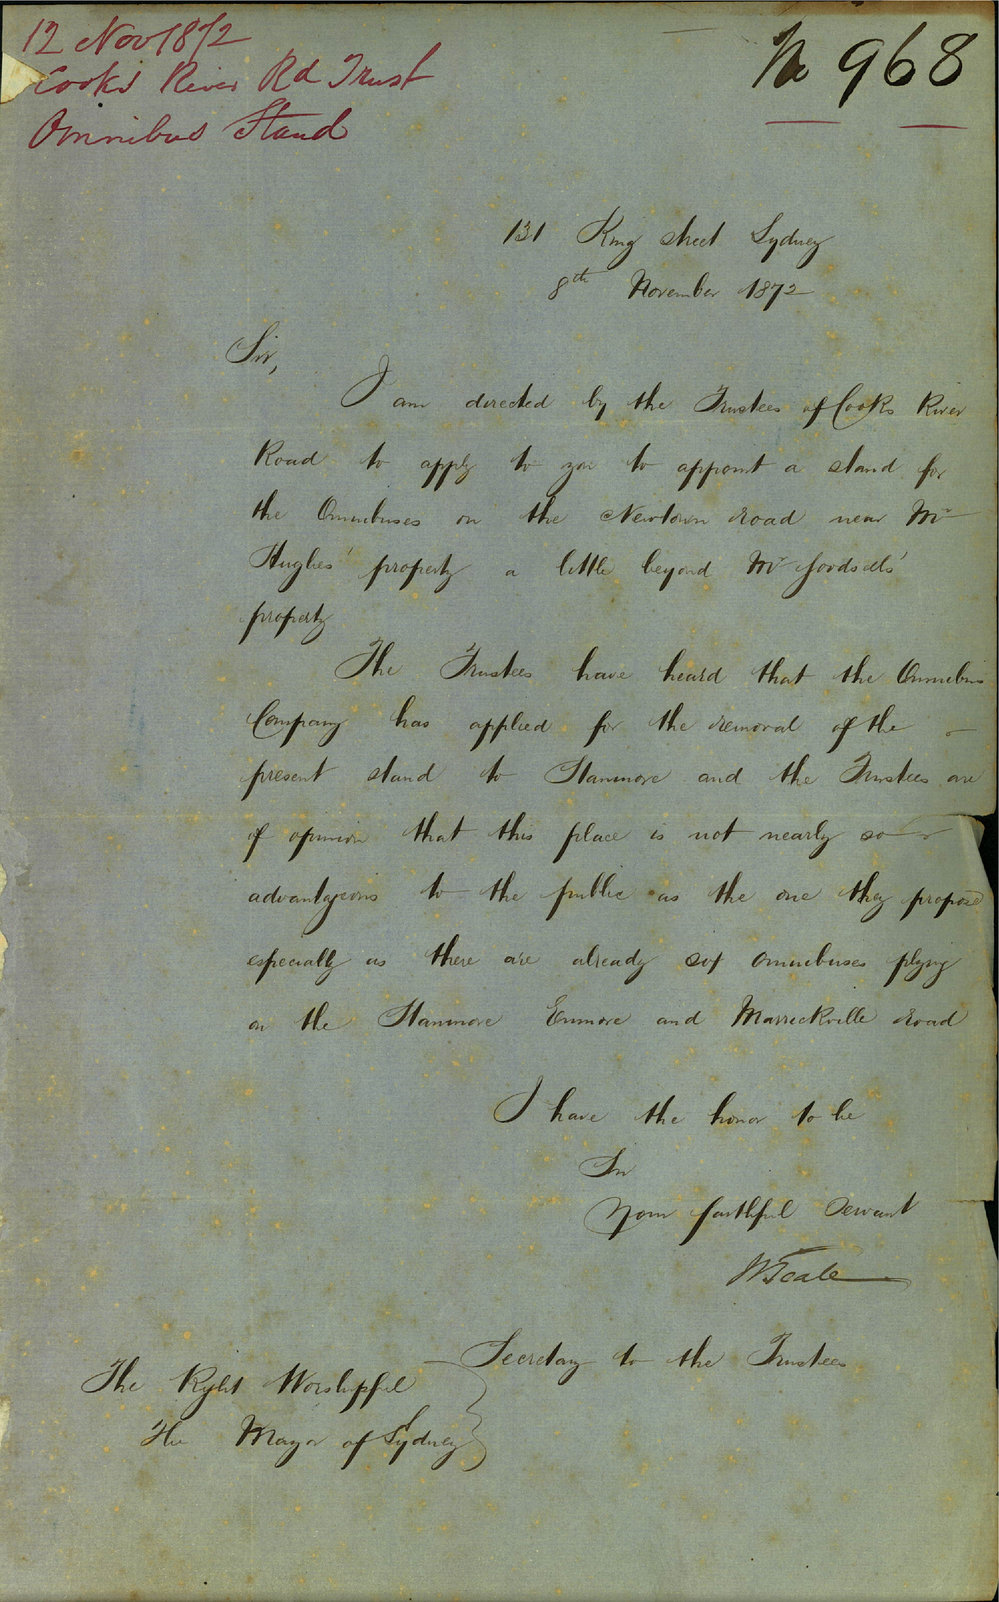 12 Nov 1872
Cooks River Rd Trust
Omnibus Stand
No 968
131 King street Sydney
8th November 1872
Sir,
I am directed by the Trustees of Cooks River
Road to apply to you to appoint a stand for
the Omnibuses on the Newtown Road near Mr
Hughes' property a little beyond Mr Goodsells'
property
The Trustees have heard that the Omnibus
Company has applied for the removal of the
present stand to Stanmore and the Trustees are
of opinion that this place is not nearly so
advantageous to the public as the one they propose
especially as there are already six omnibuses plying
on the Stanmore Enmore and Marrickville Road
I have the honor to be
Sir
Your faithful Servant
Secretary to the Trustees
The Right Worshipful
The Mayor of Sydney